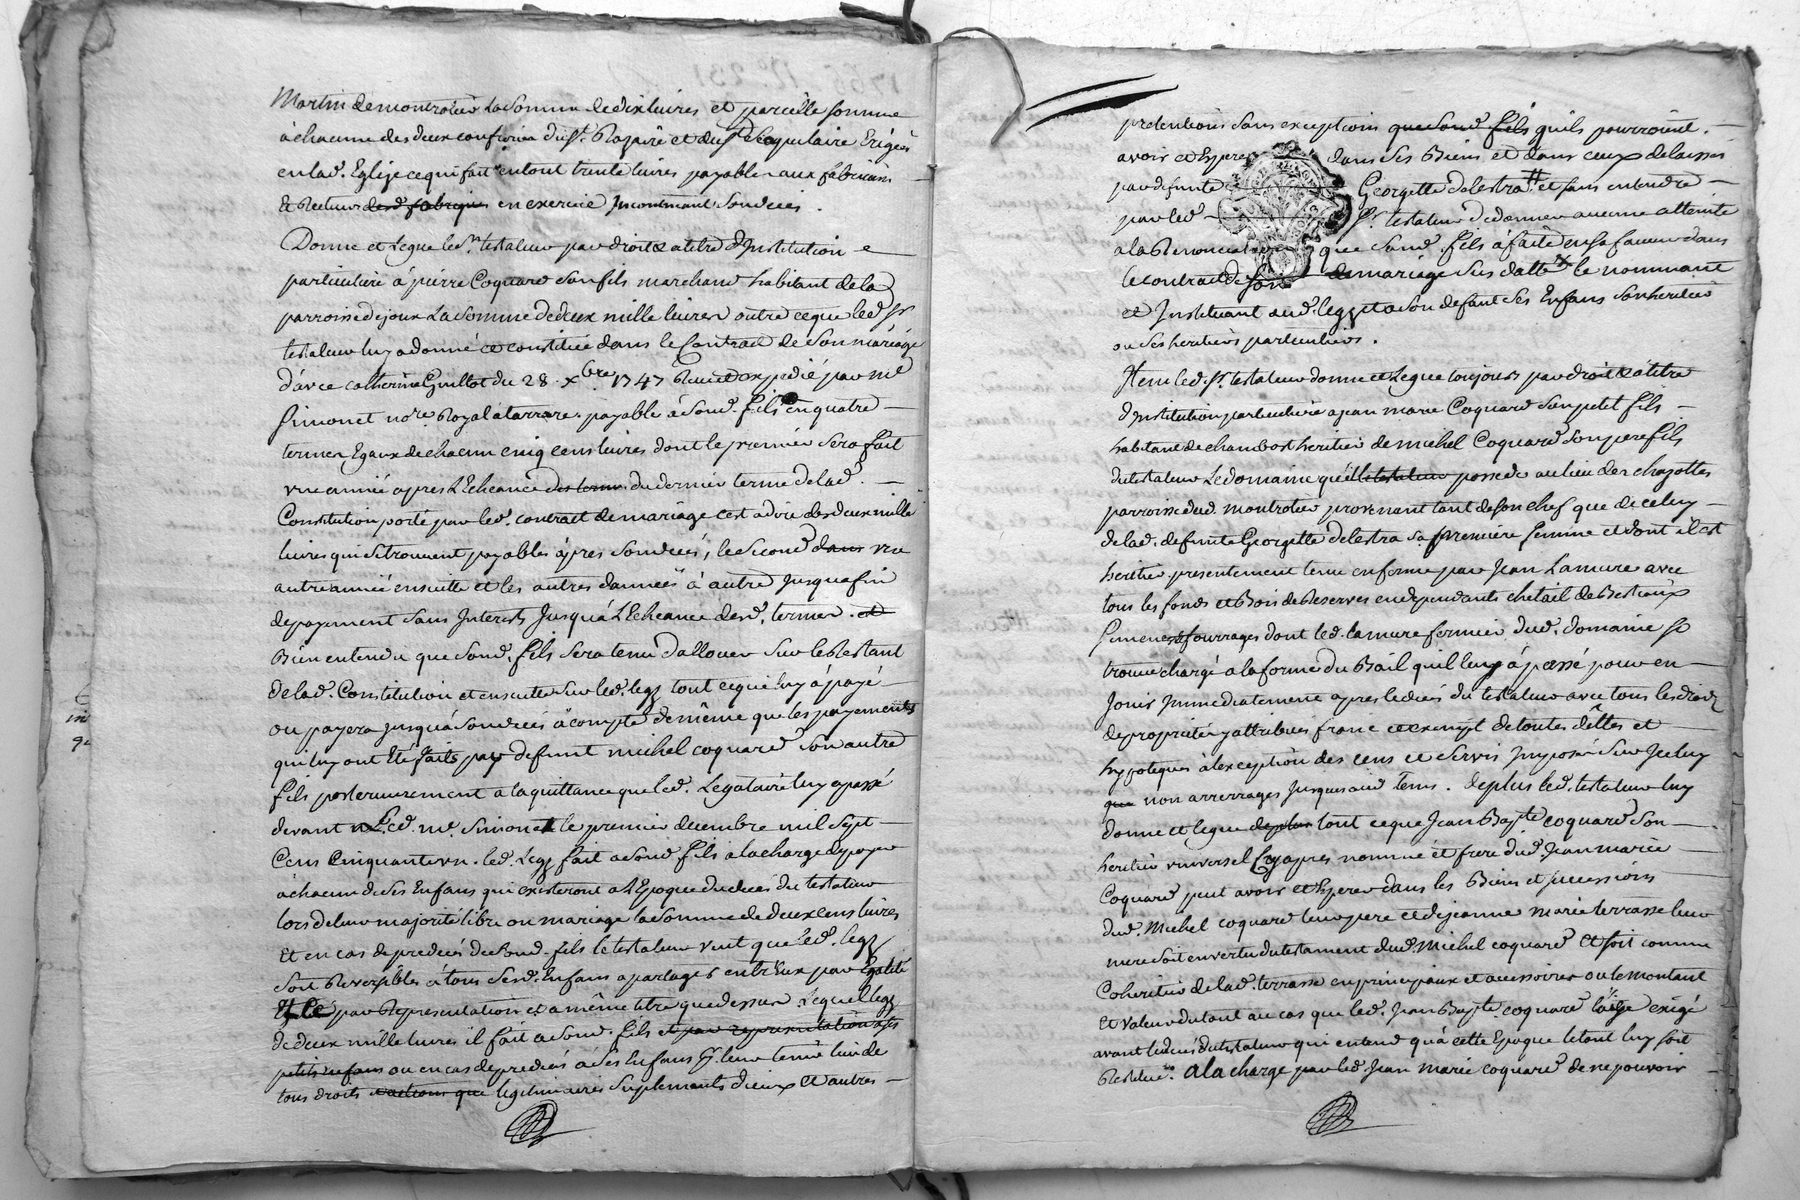 Martin de montrotier La Somme de dix livres et pareille somme
à chacune des deux confreries du St. Rozaire et du St Scapulaire Erigées
en lad. Eglize ce qui fait en tout trente livres payables aux fabriciens
et Recteurs desd fabriques en exercice Incontinant Son decès .
Donne et Legue led. Sr testateur par droit & a titre d'Institution
particuliere à pierre Coquard Son fils marchand habitant de la
parroisse de joux La Somme de deux mille livres outre ce que led Sr
testateur luy a donné et constitué dans le Contrat de Son mariage
d'avec catherine Guillot du 28 . xbre 1747 Reçu et expedié par me
Simonet nore. Royal à tarare . payable à Sond . fils en quatre
termes Egaux de chacun cinq cens livres dont le premier Sera fait
une année après L'Echeance des termes du dernier terme de lad .
Constitution porté par led . contrat de mariage c'est à dire des deux mille
livres qui Se trouvent payables après Son decès, le Second dans une
autre année ensuitte et les autres d'année à autre Jusqu'a fin
de payement Sans Interests Jusqu'à L'Echeance desd . termes . et
Bien entendu que Sond . fils Sera tenu d'allouer Sur le Restant
de lad . Constitution et ensuitte Sur led . legs tout ce qui luy à payé
ou payera jusqu'a Son decès à compte de même que les payements
qui luy ont Eté faits par defunt michel coquard Son autre
fils posterieurement a la quittance que led . Legataire luy a passé
devant led . me . Simonet le premier decembre mil Sept
Cens Cinquante un . led . Legs fait a Sond fils a la charge de payer
à chacun de Ses Enfans qui existeront a L'Epoque du decès du testateur
lors de leur majorité libre ou mariage la Somme de deux cens livres
Et en cas de predecès de Sond . fils le testateur veut que led . legs
Soit Reversible à tous Sesd . Enfans a partages entr'Eux par Egalité
par Representation et a même titre que dessus . Lequel legs
de deux mille livres il fait a Sond . fils et par representation a ses
petits enfans ou en cas de predecès à Ses Enfans pr. leur tenir lieu de
tous droits et actions que legitimaires Suplements d'iceux et autres
pretentions Sans exceptions que Sond fils qu'ils pourroint
avoir et Esperer dans Ses Biens et dans ceux delaissés
par defunte Georgette delestra et Sans entendre
par led Sr. testateur de donner aucune atteinte
a la Renonciation que Sond . fils à faite en Sa faveur dans
le contrat de Son de mariage Sus datté le nommant
et Instituant aud . legs et a Son defaut Ses Enfans Son heritier
ou Ses heritiers particuliers .
Item led . Sr. testateur donne et Legue toujours par droit & a titre
d'Institution particuliere a jean marie Coquard Son petit fils
habitant de chambost heritier de michel Coquard Son pere fils
du testateur Le domaine qu'il le testateur possede au lieu des chazottes
parroisse dud . montrotier provenant tant de Son chef que de celuy
de lad . defunte Georgette delestra Sa premiere femme et dont il est
heritier presentement tenu en ferme par Jean Lamure avec
tous les fonds et Bois de Reserves en dependants cheptail de Bestiaux
Semences fourrages dont led . lamure fermier dud . domaine Se
trouve chargé a la forme du Bail qu'il luy à passé pour en
Jouir Immediatement apres le decès du testateur avec tous les droits
de proprieté y attribués franc et exempt de toutes dettes et
hypoteques à l'exception des cens et Servis Imposés Sur Iceluy
que non arrerrages Jusques aud tems . de plus led . testateur luy
donne et legue de plus tout ce que Jean Bapte coquard Son
heritier universel Cy apres nommé et frere dud . Jean marie
Coquard peut avoir et Esperer dans les Biens et Successions
dud . Michel coquard leur pere et de jeanne marie terrasse leur
mere Soit en vertu du testament dud . Michel coquard Et Soit comme
Coheritier de lad . terrasse en principaux et accessoires ou le montant
et valeur du tout au cas que led . Jean Bapte . coquard l'aye exigé
avant le decès du testateur qui entend qu'à cette Epoque le tout luy Soit
Restitué . A la charge par led . Jean marie coquard de ne pouvoir